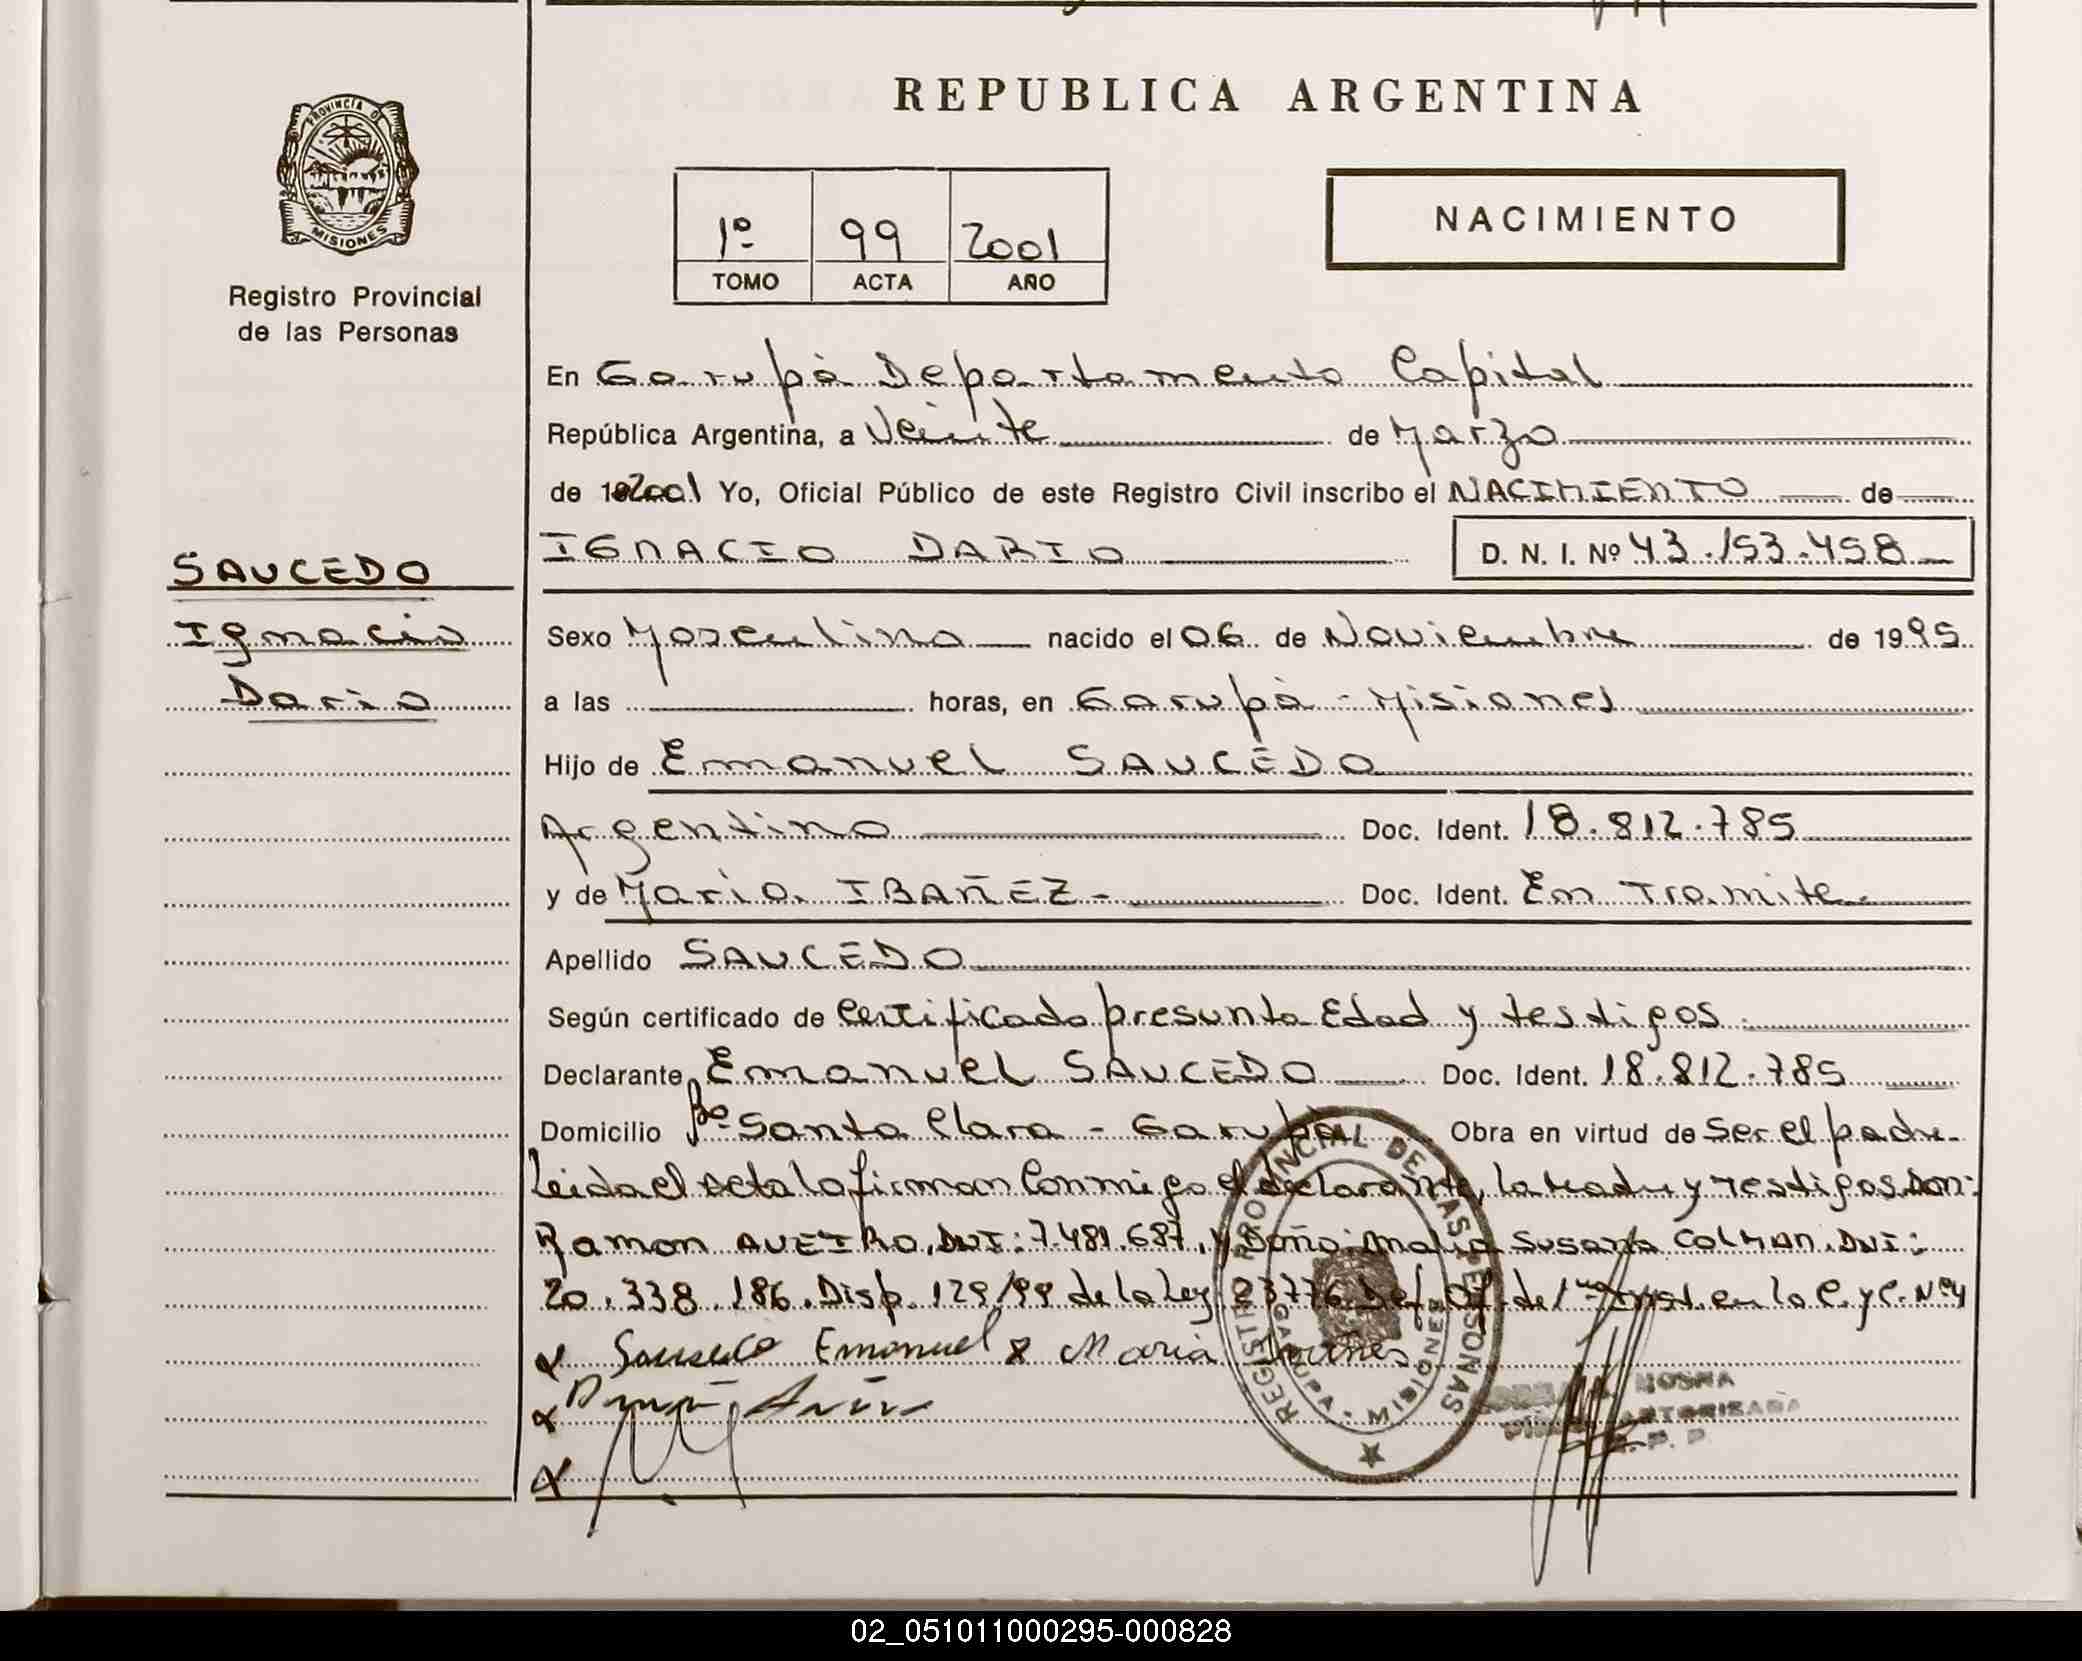 REPUBLICA ARGENTINA
PROVINCIA DE
MISIONES
Registro Provincial
de las Personas
1º 99 2001
TOMO ACTA AÑO
NACIMIENTO
En Garupà Departamento Capital
República Argentina, a Veinte de Marzo
de 192001 Yo, Oficial Público de este Registro Civil inscribo el NACIMIENTO de
IGNACIO DARIO D. N. I. Nº 43.153.458
SAUCEDO
Ignacio
Dario
Sexo Masculino nacido el 06 de Noviembre de 1995
a las horas, en Garupà - Misiones
Hijo de Emanuel SAUCEDO
Argentino Doc. Ident. 18.812.785
y de Maria IBAÑEZ - Doc. Ident. En Tramite
Apellido SAUCEDO
Según certificado de Certificado presunta Edad y testigos
Declarante Emanuel SAUCEDO Doc. Ident. 18.812.785
Domicilio Bº Santa Clara - Garupà Obra en virtud de Ser el padre
Leida el acta la firman Conmigo el declarante, la madre y testigos Don:
Ramon AVEIRO, DNI: 7.481.687, y Doña: Maria Susana COLMAN. DNI:
20.338.186. Disp. 129/99 de la Ley 23776 Def. Of. de 1ra Inst. en lo C. y C. Nº4
Saucedo Emanuel Maria
REGISTRO PROVINCIAL DE LAS PERSONAS
GARUPA - MISIONES
MOSNA
AUTORIZADA
R. P. P.
02_051011000295-000828